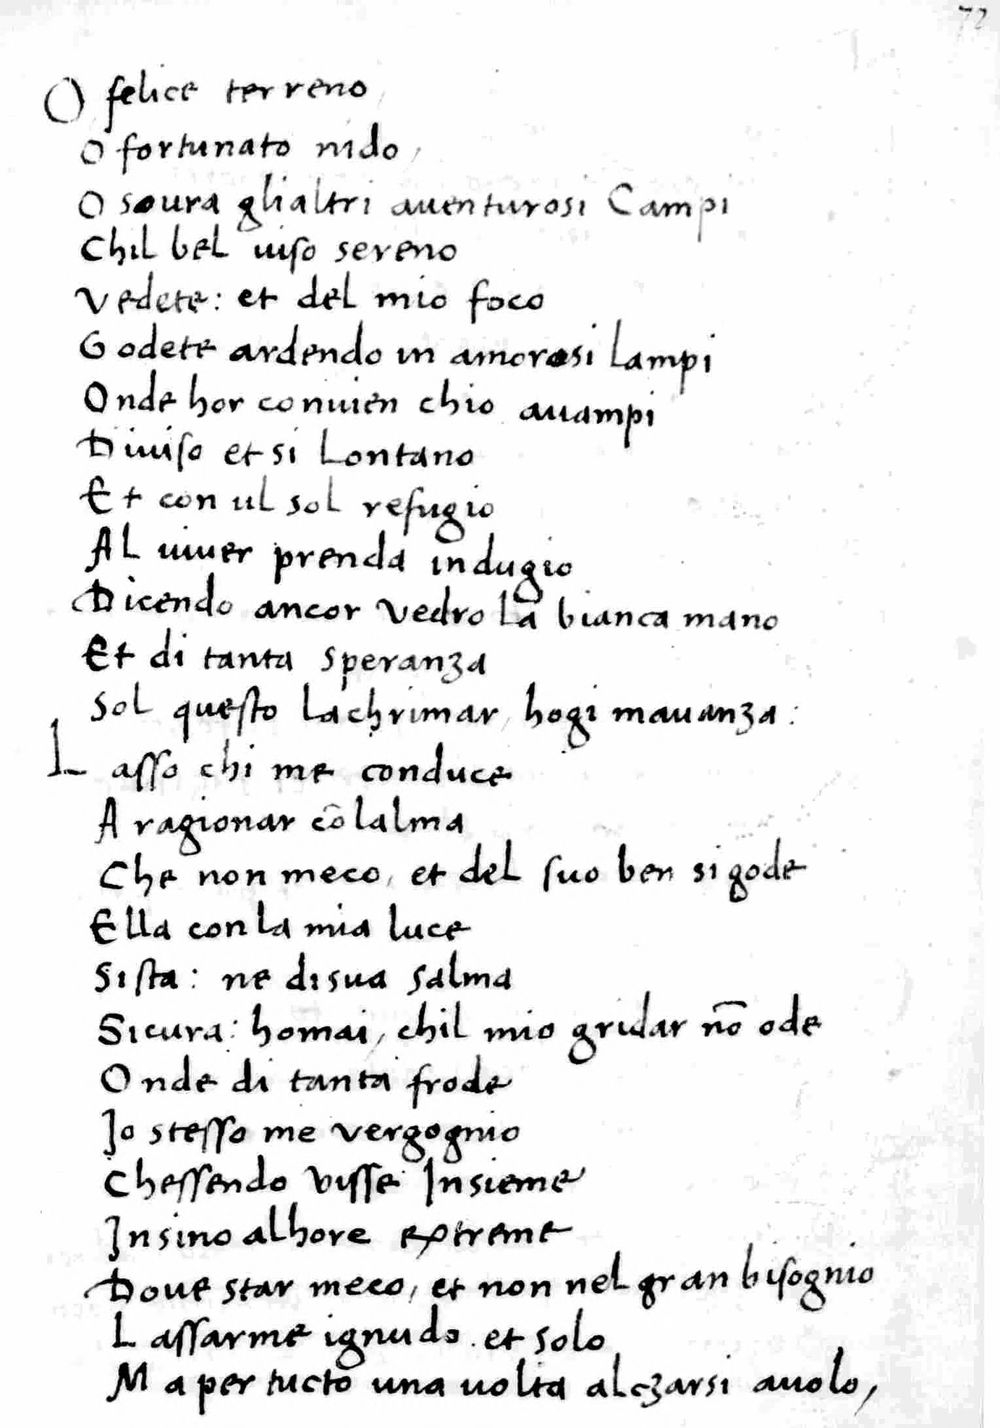 72
O felice terreno
O fortunato nido,
O soura glialtri auenturosi Campi
Chil bel uiso sereno
Vedete: et del mio foco
Godete ardendo in amorosi lampi
Onde hor conuien chio auampi
Diuiso et si Lontano
Et con ul sol refugio
Al uiuer prenda indugio
Dicendo ancor vedro La bianca mano
Et di tanta speranza
Sol questo Lachrimar, hogi mauanza:
Lasso chi me conduce
A ragionar cõ lalma
Che non meco, et del suo ben si gode
Ella con la mia luce
Sista: ne di sua salma
Sicura: homai, chil mio gridar nõ ode
Onde di tanta frode
Io stesso me vergognio
Chessendo visse Insieme
Insino alhore extreme
Doue star meco, et non nel gran bisognio
Lassarme ignudo. et solo
Ma per tucto una uolta alczarsi auolo,